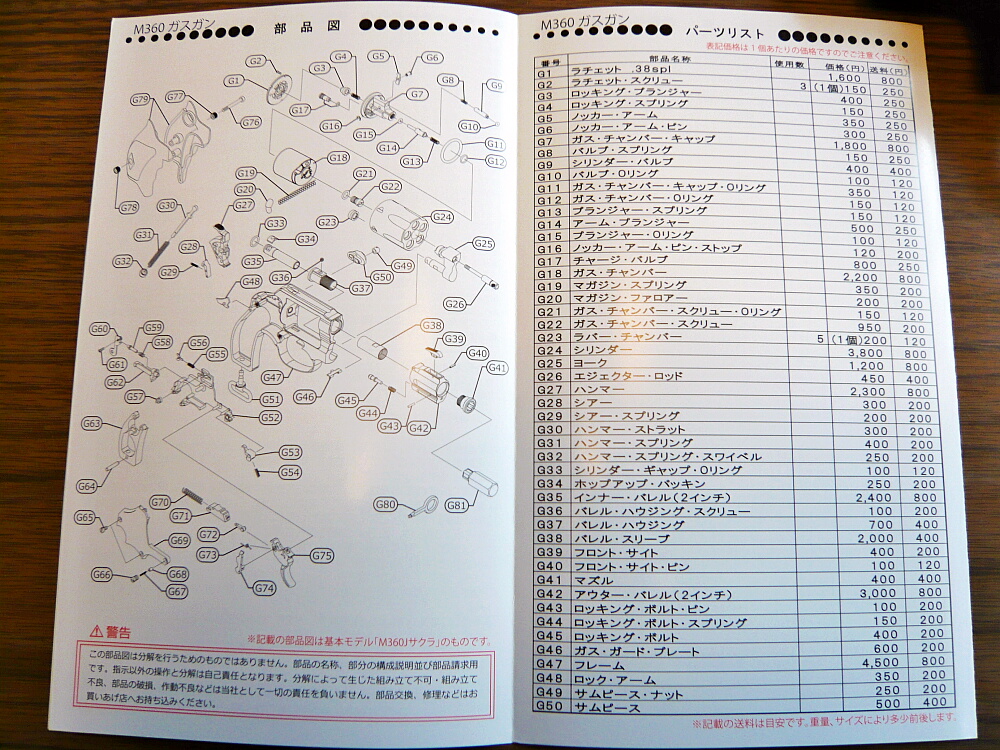 M360 ガスガン 部品図
G1
G2
G3
G4
G5
G6
G7
G8
G9
G10
G11
G12
G13
G14
G15
G16
G17
G18
G19
G20
G21
G22
G23
G24
G25
G26
G27
G28
G29
G30
G31
G32
G33
G34
G35
G36
G37
G38
G39
G40
G41
G42
G43
G44
G45
G46
G47
G48
G49
G50
G51
G52
G53
G54
G55
G56
G57
G58
G59
G60
G61
G62
G63
G64
G65
G66
G67
G68
G69
G70
G71
G72
G73
G74
G75
G76
G77
G78
G79
G80
G81
⚠警告 ※記載の部品図は基本モデル「M360Jサクラ」のものです。
この部品図は分解を行うためのものではありません。部品の名称、部分の構成説明並び部品請求用
です。指示以外の操作と分解は自己責任となります。分解によって生じた組み立て不可・組み立て
不良、部品の破損、作動不良などは当社として一切の責任を負いません。部品交換、修理などはお
買いあげ店へお持ち込みください。
M360 ガスガン パーツリスト
表記価格は1個あたりの価格ですのでご注意ください。
番号 部品名称 使用数 価格(円) 送料(円)
G1 ラチェット .38spl 1,600 800
G2 ラチェット・スクリュー 3 (1個)150 250
G3 ロッキング・プランジャー 400 250
G4 ロッキング・スプリング 150 250
G5 ノッカー・アーム 350 250
G6 ノッカー・アーム・ピン 300 250
G7 ガス・チャンバー・キャップ 1,800 800
G8 バルブ・スプリング 150 250
G9 シリンダー・バルブ 400 400
G10 バルブ・Oリング 100 120
G11 ガス・チャンバー・キャップ・Oリング 350 120
G12 ガス・チャンバー・Oリング 150 120
G13 プランジャー・スプリング 150 120
G14 アーム・プランジャー 500 250
G15 プランジャー・Oリング 100 120
G16 ノッカー・アーム・ピン・ストップ 120 200
G17 チャージ・バルブ 800 250
G18 ガス・チャンバー 2,200 800
G19 マガジン・スプリング 350 200
G20 マガジン・ファロアー 200 200
G21 ガス・チャンバー・スクリュー・Oリング 150 120
G22 ガス・チャンバー・スクリュー 950 200
G23 ラバー・チャンバー 5 (1個)200 120
G24 シリンダー 3,800 800
G25 ヨーク 1,200 800
G26 エジェクター・ロッド 450 400
G27 ハンマー 2,300 800
G28 シアー 300 200
G29 シアー・スプリング 200 200
G30 ハンマー・ストラット 300 200
G31 ハンマー・スプリング 400 200
G32 ハンマー・スプリング・スワイベル 250 200
G33 シリンダー・ギャップ・Oリング 100 120
G34 ホップアップ・パッキン 250 200
G35 インナー・バレル(2インチ) 2,400 800
G36 バレル・ハウジング・スクリュー 100 200
G37 バレル・ハウジング 700 400
G38 バレル・スリーブ 2,000 400
G39 フロント・サイト 400 200
G40 フロント・サイト・ピン 100 120
G41 マズル 400 400
G42 アウター・バレル(2インチ) 3,000 800
G43 ロッキング・ボルト・ピン 100 200
G44 ロッキング・ボルト・スプリング 150 200
G45 ロッキング・ボルト 400 200
G46 ガス・ガード・プレート 600 200
G47 フレーム 4,500 800
G48 ロック・アーム 350 200
G49 サムピース・ナット 250 200
G50 サムピース 500 400
※記載の送料は目安です。重量、サイズにより多少前後します。